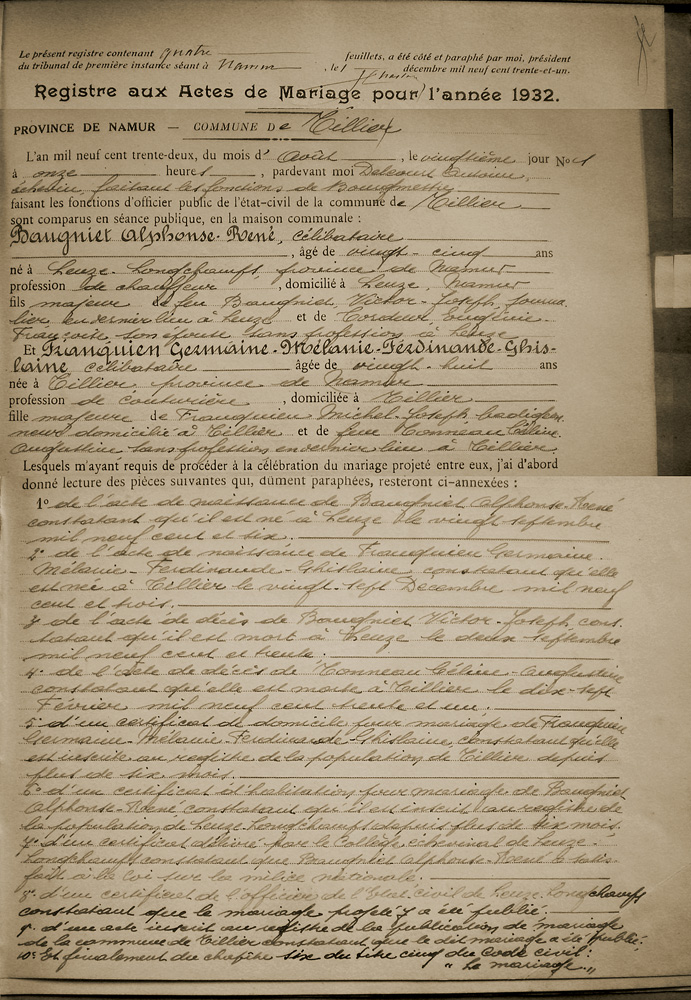 Le présent registre contenant quatre feuillets, a été côté et paraphé par moi, président
du tribunal de première instance séant à Namur, le décembre mil neuf cent trente-et-un.
Registre aux Actes de Mariage pour l'année 1932.
PROVINCE DE NAMUR — COMMUNE De Tillier
L'an mil neuf cent trente-deux, du mois d' Août, le vingtième jour No 1
à onze heures, pardevant moi Delcourt Antoine,
échevin, faisant les fonctions de Bourgmestre
faisant les fonctions d'officier public de l'état-civil de la commune de Tillier
sont comparus en séance publique, en la maison communale :
Baugniet Alphonse-René, célibataire
, âgé de vingt-cinq ans
né à Leuze-Longchamps, province de Namur
profession de chauffeur, domicilié à Leuze, Namur
fils majeur de feu Baugniet, Victor-Joseph, journa-
lier en dernier lieu à Leuze et de Cordeur Eugénie-
Françoise son épouse sans profession à Leuze
Et Franquien Germaine-Mélanie-Ferdinande-Ghis-
laine, célibataire âgée de vingt-huit ans
née à Tillier province de Namur
profession de couturière, domiciliée à Tillier
fille majeure de Franquien Michel-Joseph, badigeon-
neur domicilié à Tillier et de feue Tonneau Céline-
Augustine sans profession en dernier lieu à Tillier
Lesquels m'ayant requis de procéder à la célébration du mariage projeté entre eux, j'ai d'abord
donné lecture des pièces suivantes qui, dûment paraphées, resteront ci-annexées :
1° de l'acte de naissance de Baugniet Alphonse-René
constatant qu'il est né à Leuze le vingt septembre
mil neuf cent et six.
2° de l'acte de naissance de Franquien Germaine-
Mélanie-Ferdinande-Ghislaine constatant qu'elle
est née à Tillier le vingt-sept Décembre mil neuf
cent et trois.
3° de l'acte de décès de Baugniet Victor-Joseph, cons-
tatant qu'il est mort à Leuze le deux septembre
mil neuf cent et trente.
4° de l'acte de décès de Tonneau Céline-Augustine
constatant qu'elle est morte à Tillier le dix-sept
Février mil neuf cent trente et un.
5° d'un certificat de domicile pour mariage de Franquien
Germaine-Mélanie-Ferdinande-Ghislaine, constatant qu'elle
est inscrite au registre de la population de Tillier depuis
plus de six mois.
6° d'un certificat d'habitation pour mariage de Baugniet
Alphonse-René constatant qu'il est inscrit au registre de
la population de Leuze-Longchamps depuis plus de six mois.
7° d'un certificat délivré par le Collège échevinal de Leuze-
Longchamps constatant que Baugniet Alphonse-René a satis-
fait à la loi sur la milice nationale.
8° d'un certificat de l'officier de l'Etat civil de Leuze-Longchamps
constatant que le mariage projeté y a été publié.
9° d'un acte inscrit au registre de la publication de mariage
de la commune de Tillier constatant que le dit mariage a été publié.
10° Et finalement du chapitre six du titre cinq du Code civil:
" Le mariage. "